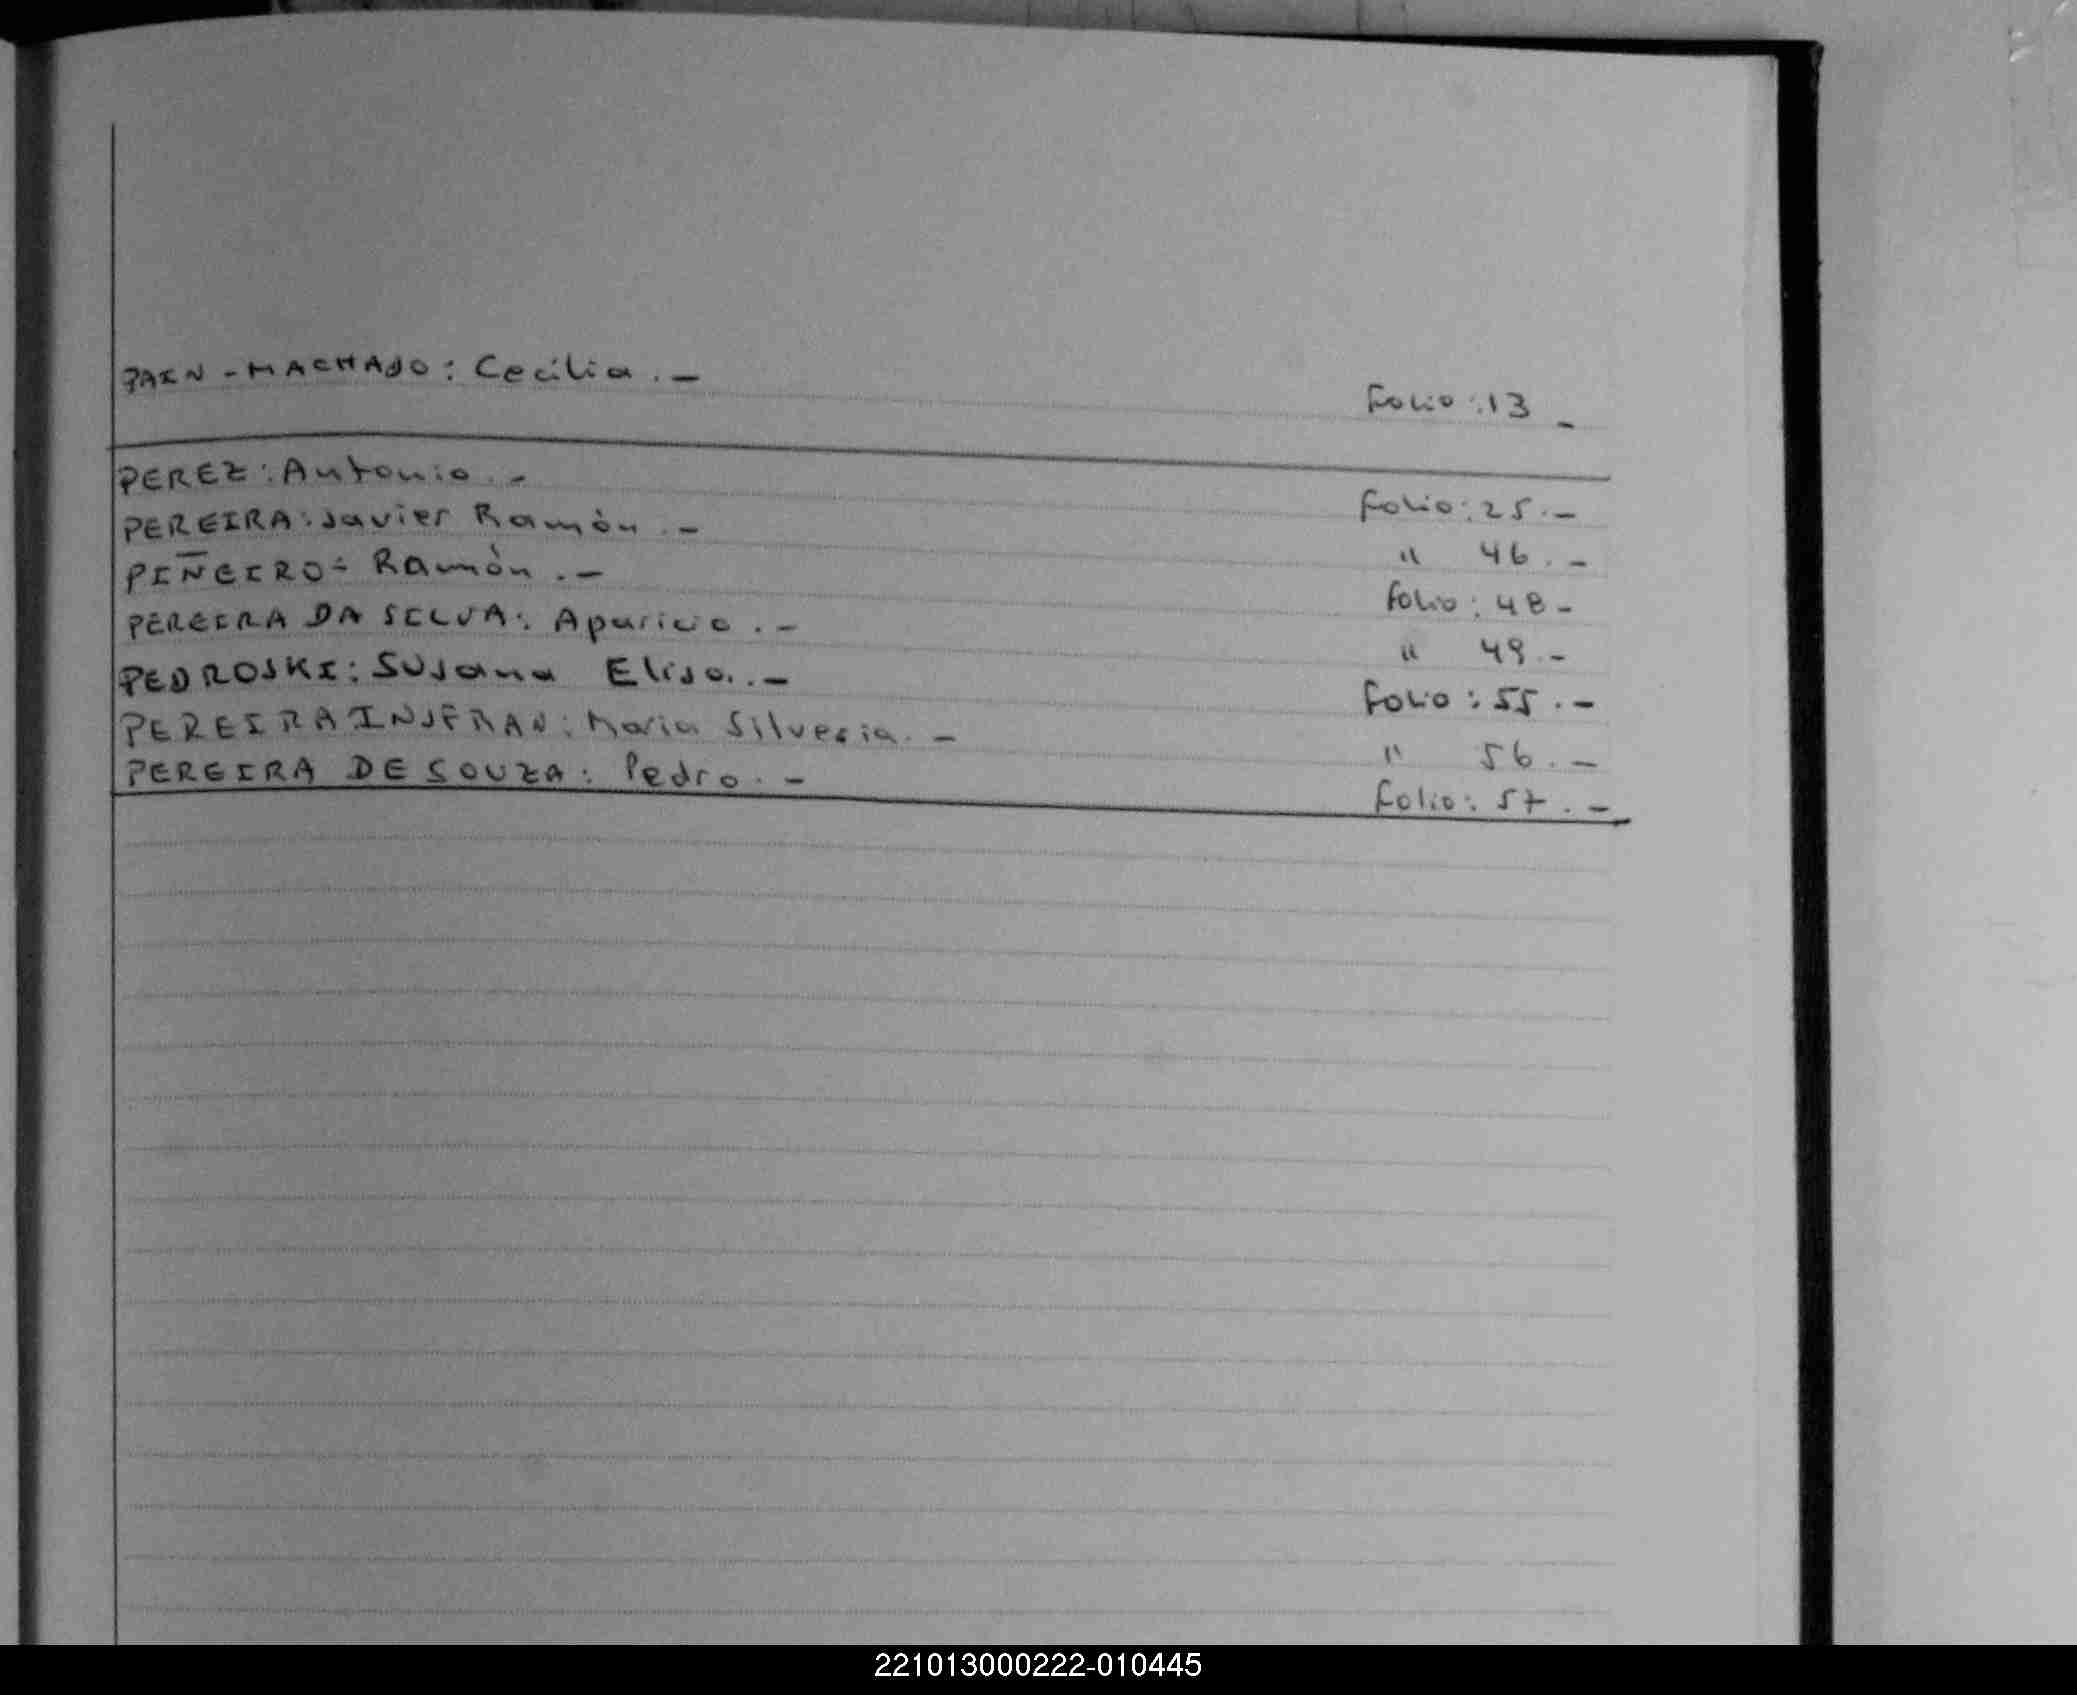 PAIN-MACHADO: Cecilia.- Folio:13-
PEREZ: Antonio.- Folio:25.-
PEREIRA: Javier Ramòn.- " 46.-
PIÑEIRO= Ramòn.- Folio: 48-
PEREIRA DA SILVA: Aparicio.- " 49.-
PEDROSKI: Susana Elisa..- Folio: 55.-
PEREIRA INSFRAN: Maria Silveria.- " 56.-
PEREIRA DE SOUZA: Pedro.- Folio: 57.-
221013000222-010445